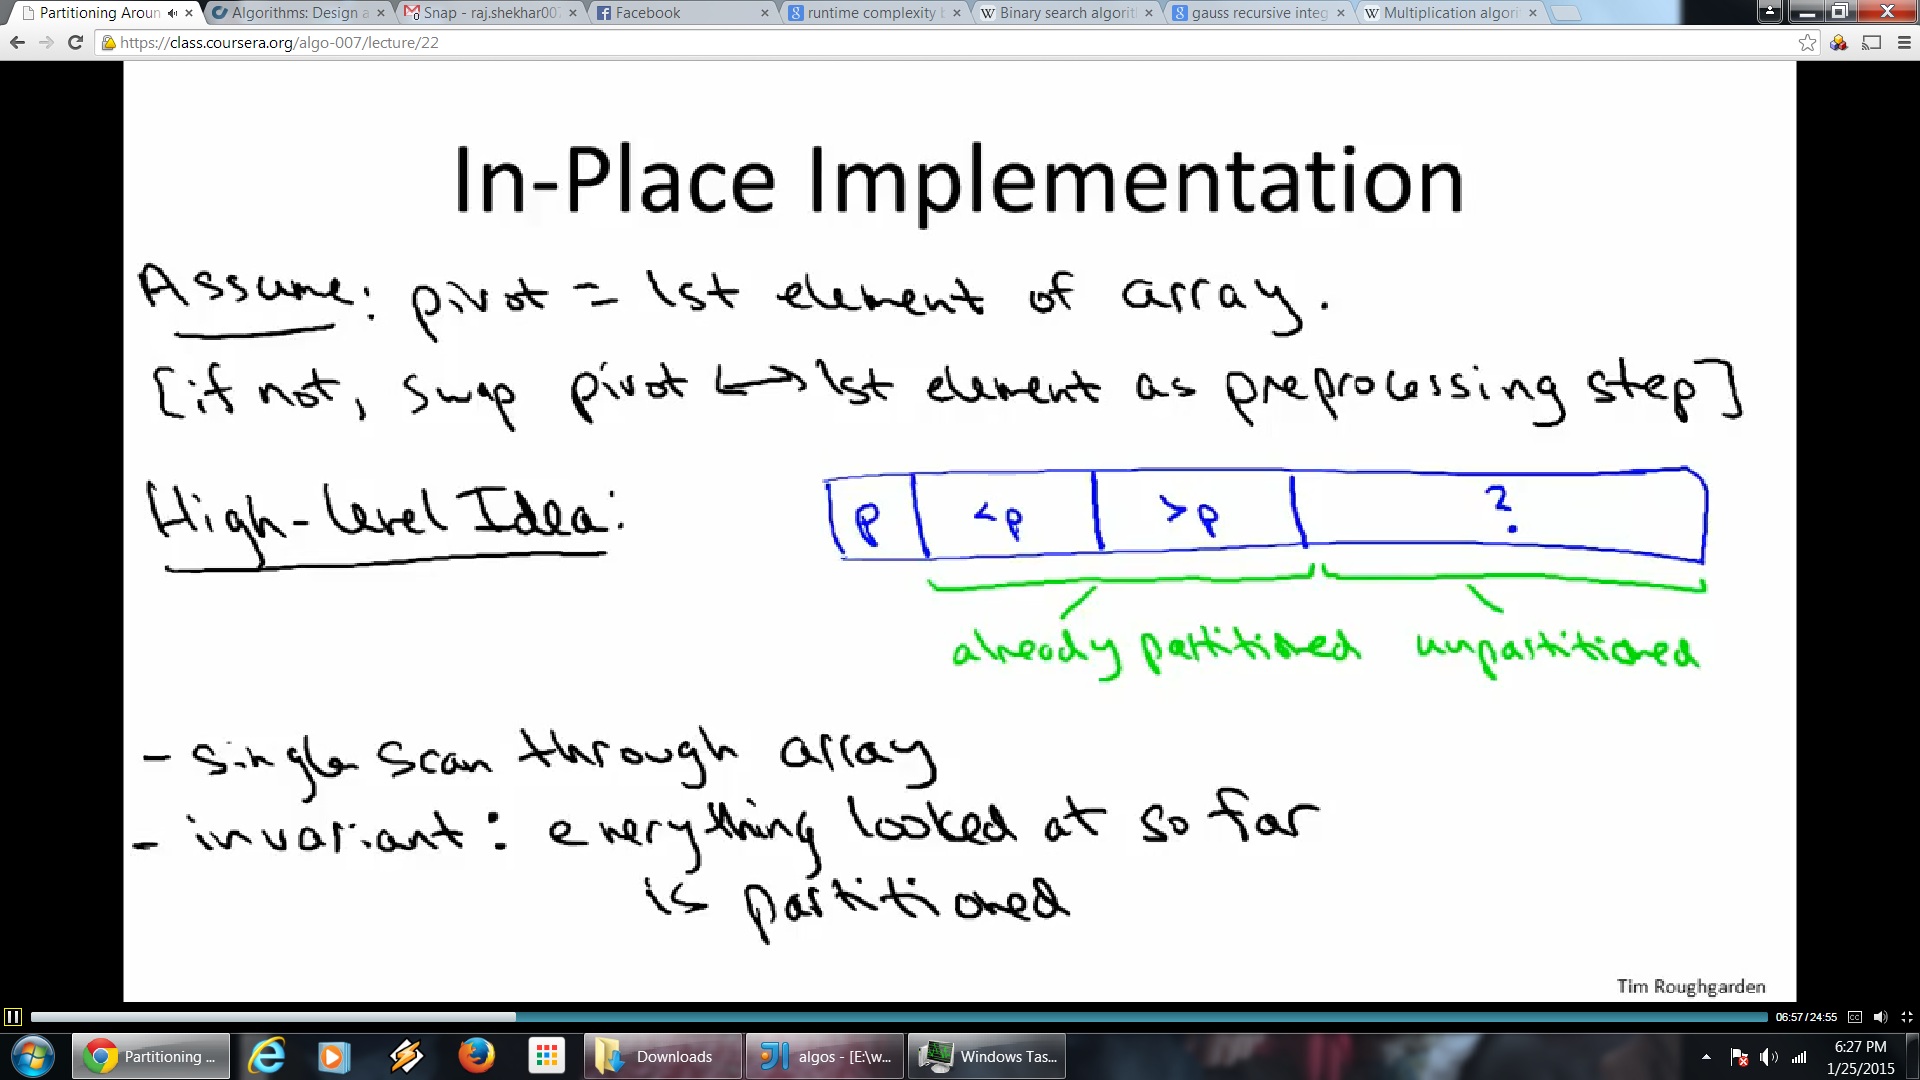 Partitioning Aroun
Algorithms: Design a
Snap - raj.shekhar007
Facebook
runtime complexity b
Binary search algorit
gauss recursive integ
Multiplication algori
https://class.coursera.org/algo-007/lecture/22
In-Place Implementation
Assume: pivot = 1st element of array.
[if not, swap pivot ↔ 1st element as preprocessing step]
High-Level Idea:
p <p >p ?
already partitioned unpartitioned
- single scan through array
- invariant: everything looked at so far
is partitioned
Tim Roughgarden
06:57/24:55 CC
Partitioning ...
Downloads
algos - [E:\w...
Windows Tas...
6:27 PM
1/25/2015